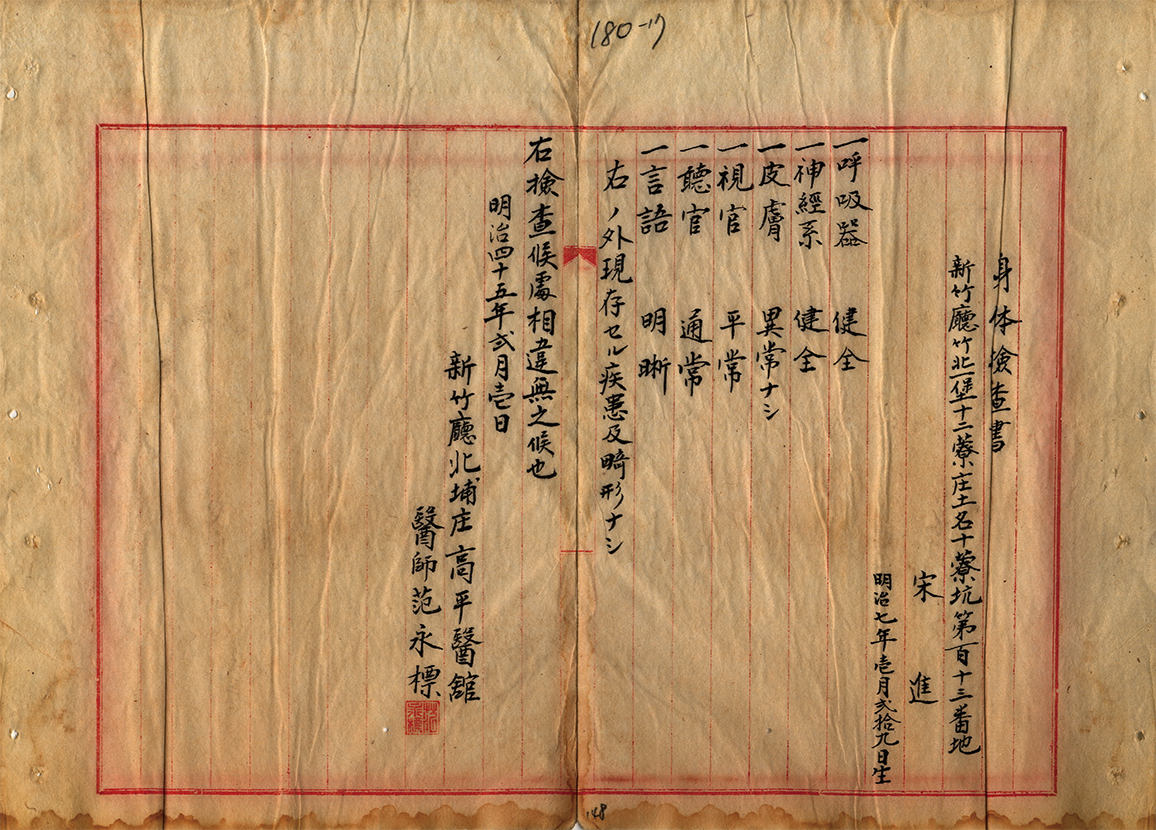 180-17
身体檢查書
新竹廳竹北一堡十二藔庄土名十藔坑第百十三番地
宋進
明治七年壱月弐拾九日生
一呼吸器 健全
一神經系 健全
一皮膚 異常ナシ
一視官 平常
一聽官 通常
一言語 明晰
右ノ外現存セル疾患及畸形ナシ
右檢查候處相違無之候也
明治四十五年弐月壱日
新竹廳北埔庄高平醫舘
醫師范永標
148